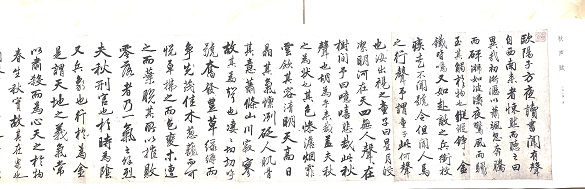 秋聲賦
歐陽子方夜讀書聞有聲
自西南來者悚然而聽之曰
異哉初淅瀝以蕭颯忽奔騰
而砰湃如波濤夜驚風雨驟
至其觸於物也鏦鏦錚錚金
鐵皆鳴又如赴敵之兵銜枚
疾走不聞號令但聞人馬
之行聲予謂童子此何聲
也汝出視之童子曰星月皎
潔明河在天四無人聲聲在
樹間予曰噫嘻悲哉此秋
聲也胡為乎來哉蓋夫秋
之為狀也其色慘淡烟霏
雲斂其容清明天高日
晶其氣慄冽砭人肌骨
其意蕭條山川寂寥
故其為聲也淒淒切切呼
號奮發豐草綠縟而
争茂佳木葱蘢而可
悅草拂之而色變木遭
之而葉脫其所以摧敗
零落者乃一氣之餘烈
夫秋刑官也於時為陰
又兵象也於行為金
是謂天地之義氣常
以肅殺而為心天之於物
春生秋實故其在樂也